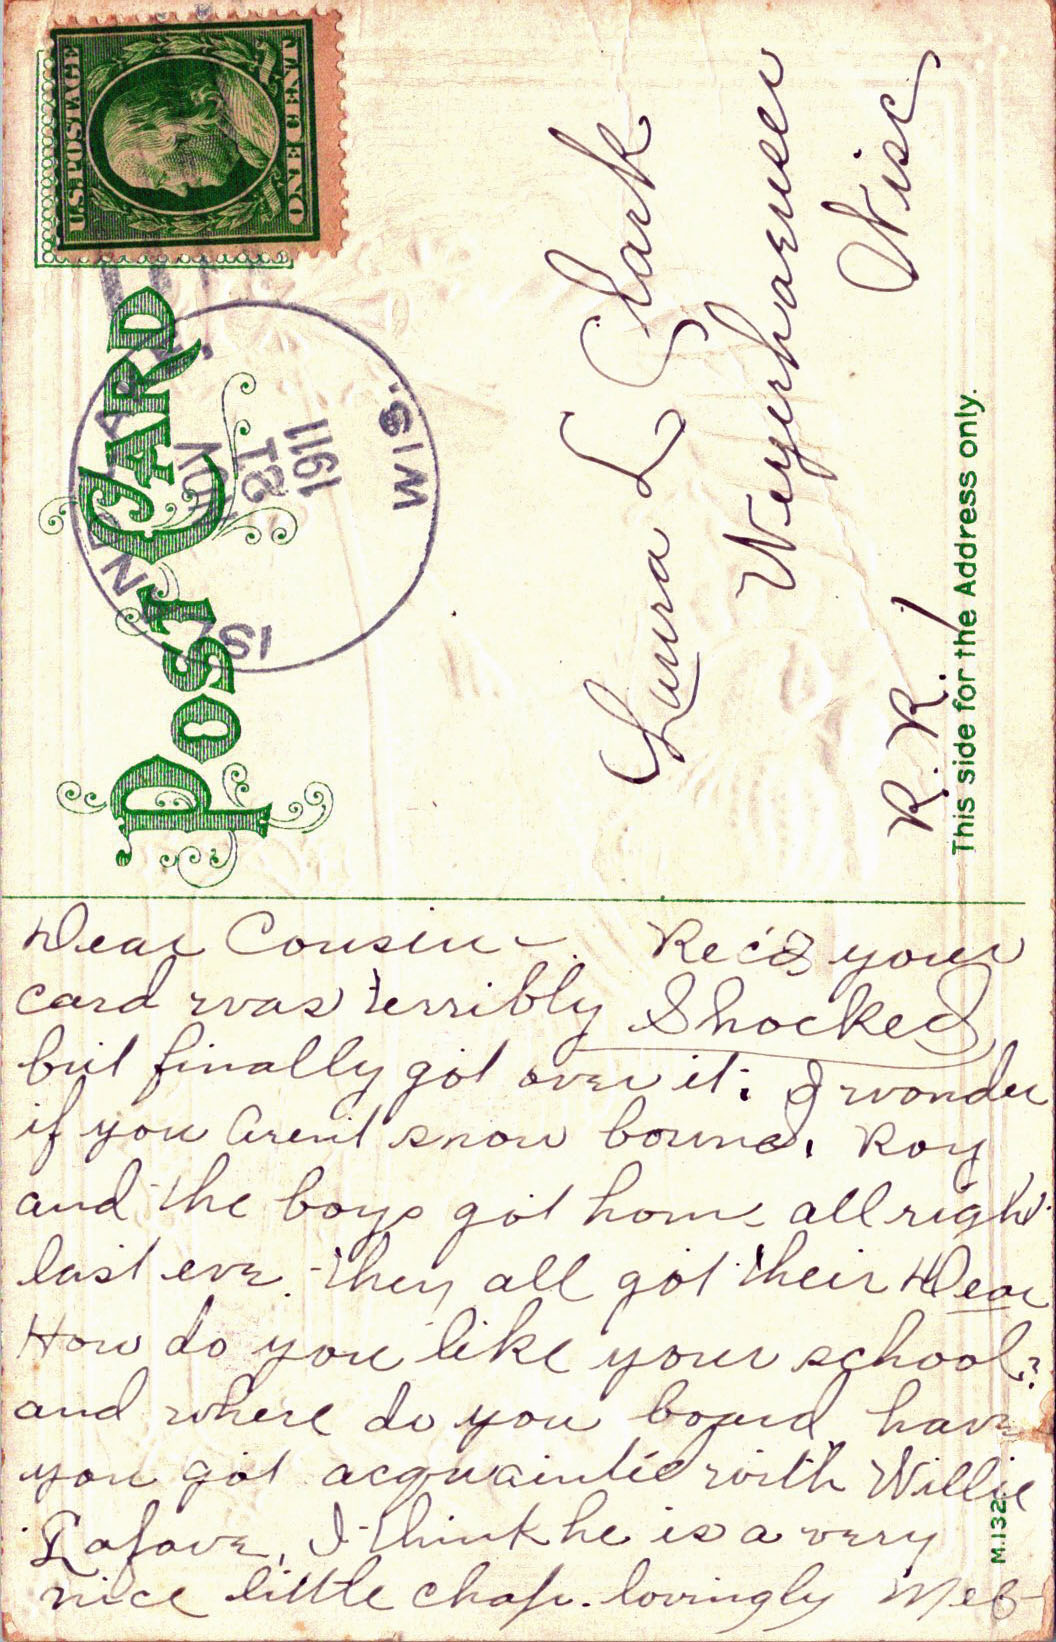 U.S. POSTAGE
ONE CENT
POST CARD
ISLAND LAKE,
NOV
21
1911
WIS.
Laura L Clark
Weyerhaeuser
Wisc
R.R.1
This side for the Address only.
Dear Cousin - Rec'd your
card was terribly Shocked
but finally got over it. I wonder
if you arent snow bound. Roy
and the boys got home all right
last eve. they all got their Dear
How do you like your school?
and where do you board have
you got acquainted with Willie
Lafave, I think he is a very
nice little chap. lovingly Meb
M.132.